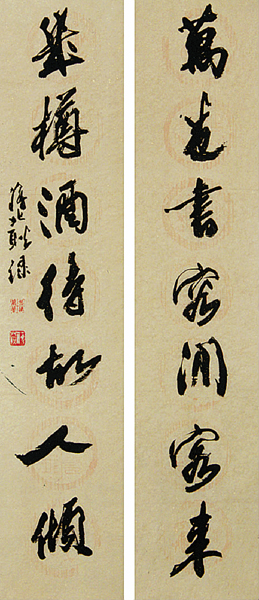 萬卷書容閒客來
幾樽酒待故人傾